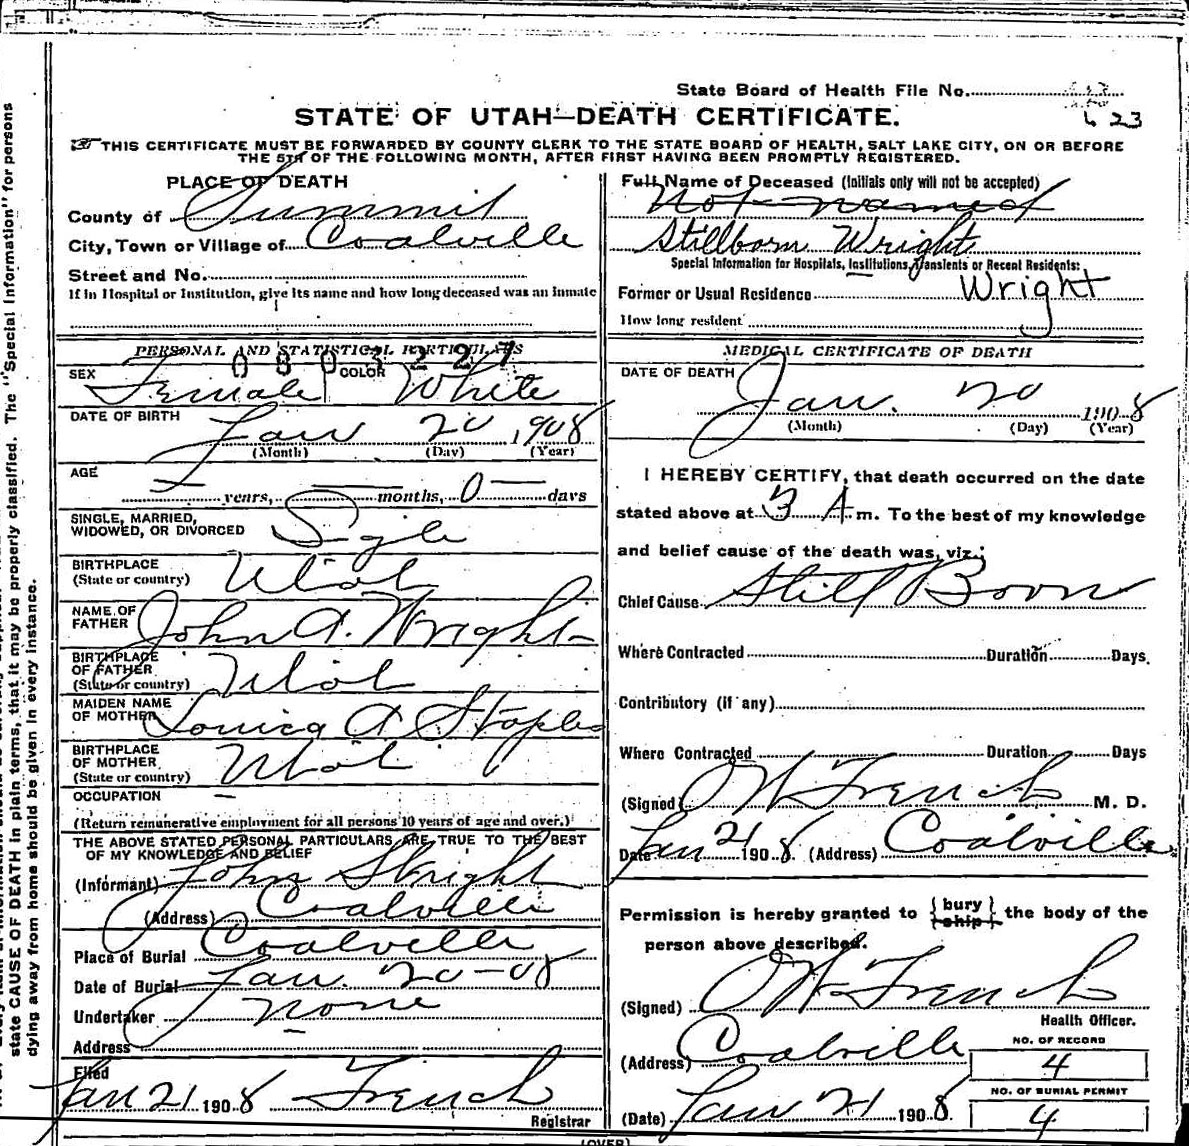 State Board of Health File No.
623
STATE OF UTAH—DEATH CERTIFICATE.
THIS CERTIFICATE MUST BE FORWARDED BY COUNTY CLERK TO THE STATE BOARD OF HEALTH, SALT LAKE CITY, ON OR BEFORE
THE 5TH OF THE FOLLOWING MONTH, AFTER FIRST HAVING BEEN PROMPTLY REGISTERED.
PLACE OF DEATH
County of Summit
City, Town or Village of Coalville
Street and No.
If in Hospital or Institution, give its name and how long deceased was an inmate
Full Name of Deceased (Initials only will not be accepted)
Not named
Stillborn Wright
Special Information for Hospitals, Institutions, Transients or Recent Residents:
Former or Usual Residence Wright
How long resident
PERSONAL AND STATISTICAL PARTICULARS
0803227
SEX Female COLOR White
DATE OF BIRTH
Jan 20 1908
(Month) (Day) (Year)
AGE
— years, — months, 0 — days
SINGLE, MARRIED,
WIDOWED, OR DIVORCED Sigle
BIRTHPLACE
(State or country) Utah
NAME OF
FATHER John A. Wright
BIRTHPLACE
OF FATHER
(State or country) Utah
MAIDEN NAME
OF MOTHER Louica A Staples
BIRTHPLACE
OF MOTHER
(State or country) Utah
OCCUPATION —
(Return remunerative employment for all persons 10 years of age and over.)
THE ABOVE STATED PERSONAL PARTICULARS ARE TRUE TO THE BEST
OF MY KNOWLEDGE AND BELIEF
(Informant) John Wright
(Address) Coalville
Place of Burial Coalville
Date of Burial Jan. 20-08
Undertaker None
Address
Filed
Jan 21 1908 French
Registrar
MEDICAL CERTIFICATE OF DEATH
DATE OF DEATH
Jan. 20 1908
(Month) (Day) (Year)
I HEREBY CERTIFY, that death occurred on the date
stated above at 3 A m. To the best of my knowledge
and belief cause of the death was, viz.:
Chief Cause Still Born
Where Contracted Duration Days.
Contributory (if any)
Where Contracted Duration Days
(Signed) O W French M. D.
Date Jan 21 1908. (Address) Coalville
Permission is hereby granted to { bury ship } the body of the
person above described.
(Signed) O W French
Health Officer.
(Address) Coalville
NO. OF RECORD
4
NO. OF BURIAL PERMIT
4
(Date) Jan 21 1908.
(OVER)
state CAUSE OF DEATH in plain terms, that it may be properly classified. The "Special Information" for persons
dying away from home should be given in every instance.